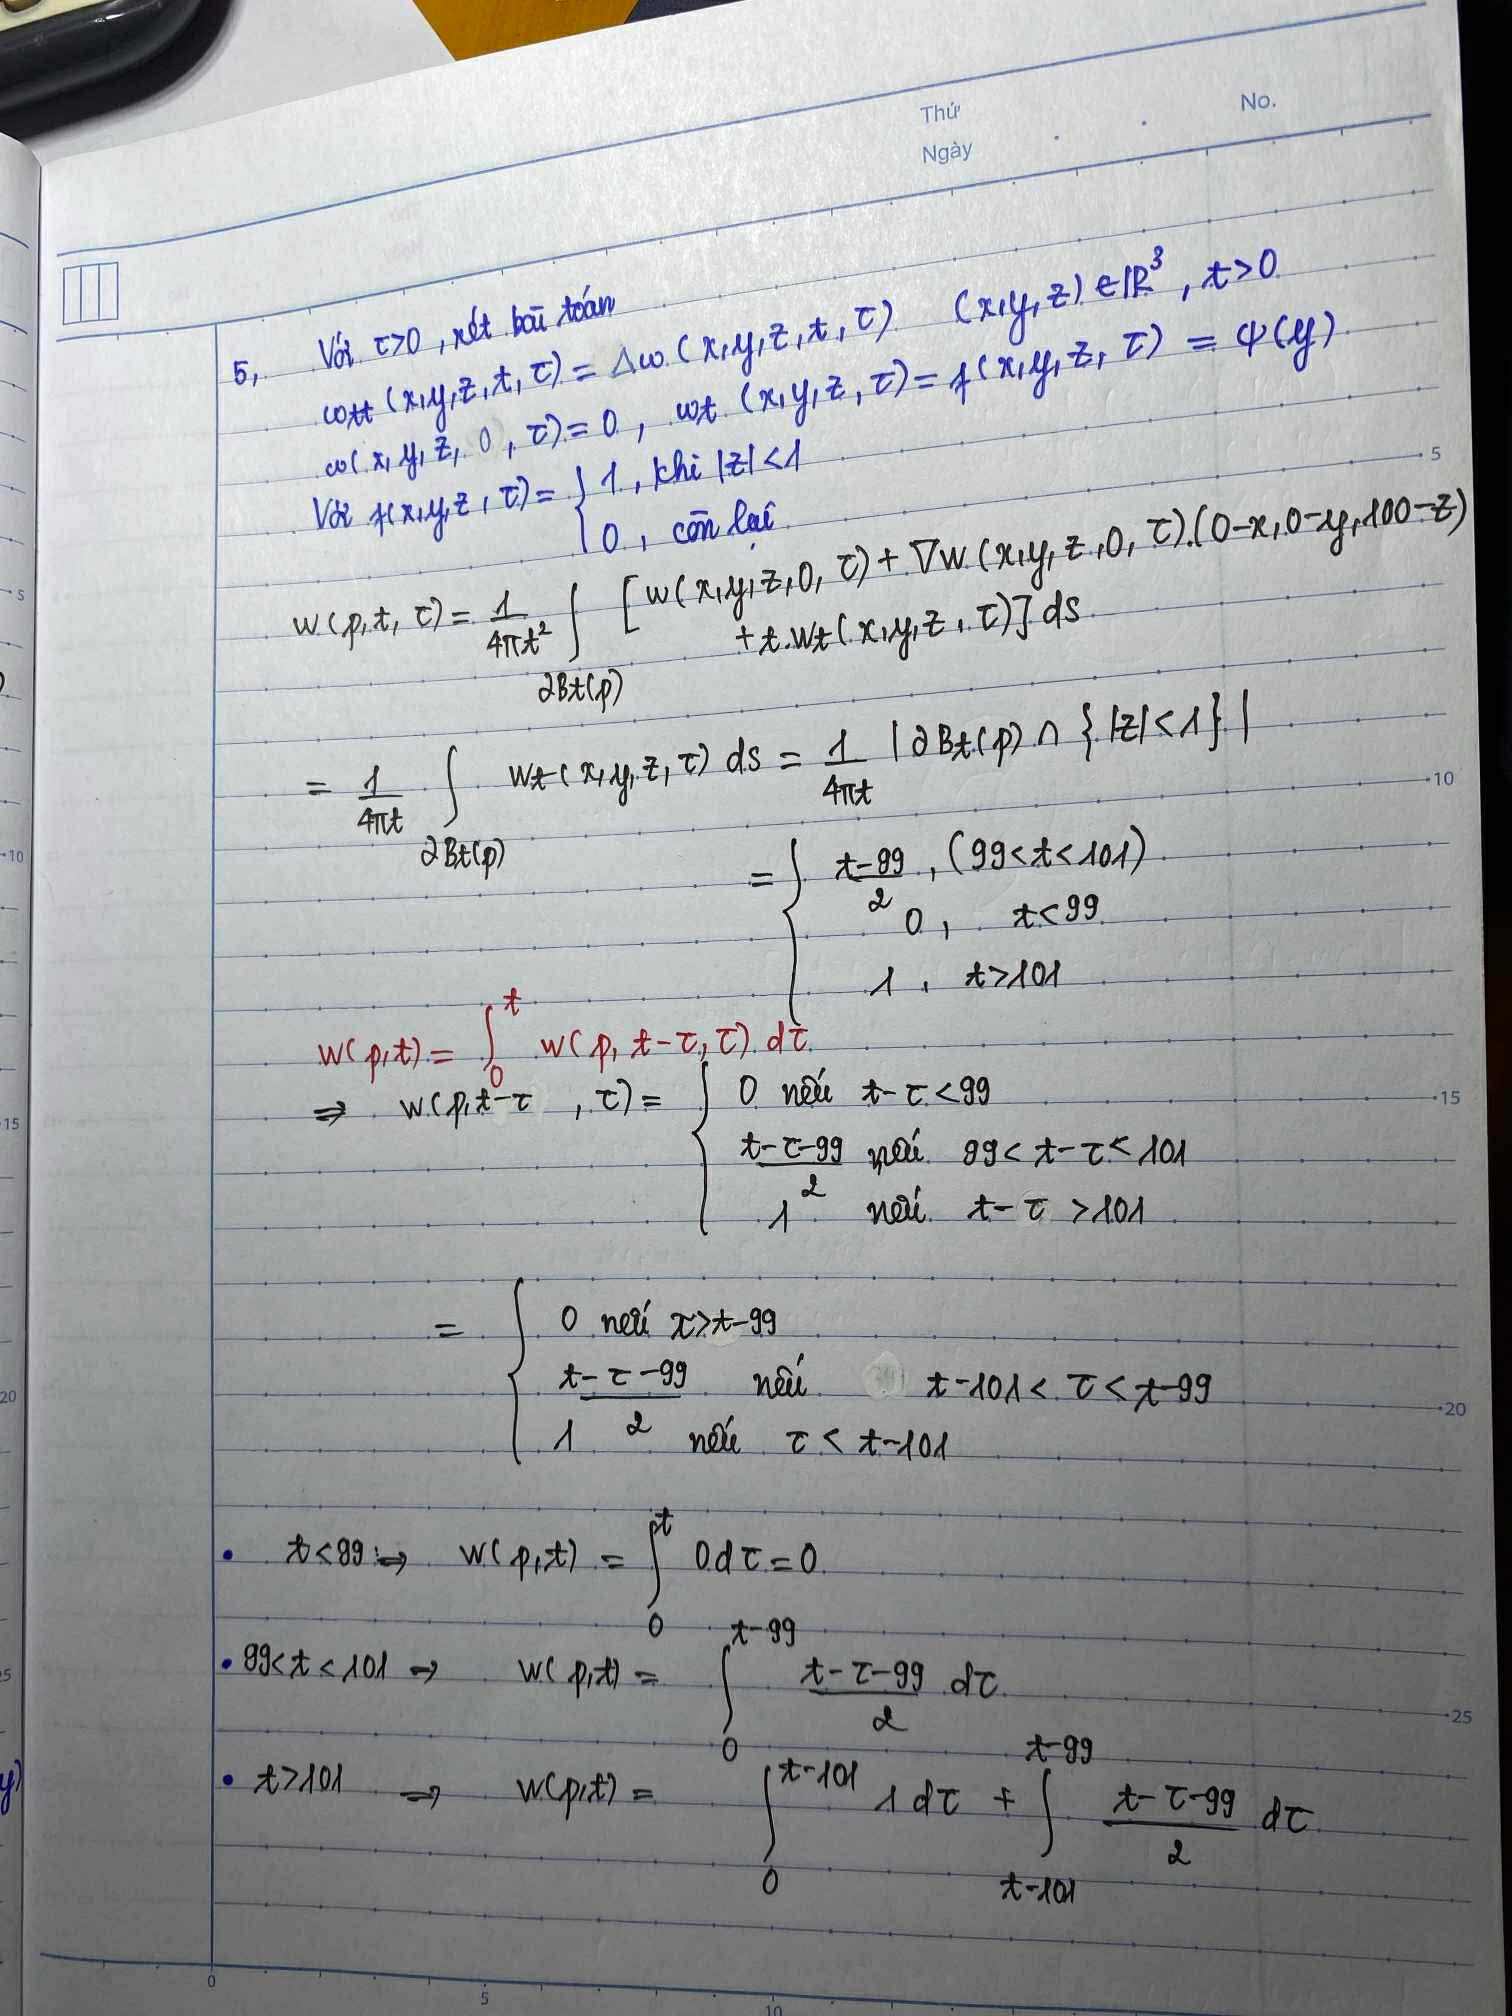 Thứ
No.
Ngày
5, Với τ>0, xét bài toán
ωtt (x,y,z,t,τ) = Δω (x,y,z,t,τ) (x,y,z) ∈ ℝ³, t>0
ω(x,y,z,0,τ)=0, ωt (x,y,z,τ) = f(x,y,z,τ) = ψ(y)
Với f(x,y,z,τ) = { 1, khi |z|<1
0, còn lại
w(p,t,τ) = 1/(4πt²) ∫_{∂Bt(p)} [w(x,y,z,0,τ) + ∇w(x,y,z,0,τ).(0-x,0-y,100-z)
+ t.wt(x,y,z,τ)] ds
= 1/(4πt) ∫_{∂Bt(p)} wt(x,y,z,τ) ds = 1/(4πt) |∂Bt(p) ∩ {|z|<1}|
= { (t-99)/2, (99<t<101)
0, t<99
1, t>101
w(p,t) = ∫_0^t w(p,t-τ,τ) dτ
⇒ w(p,t-τ,τ) = { 0 nếu t-τ<99
(t-τ-99)/2 nếu 99<t-τ<101
1 nếu t-τ>101
= { 0 nếu τ>t-99
(t-τ-99)/2 nếu t-101<τ<t-99
1 nếu τ<t-101
• t<99 ⇒ w(p,t) = ∫_0^t 0dτ=0
• 99<t<101 ⇒ w(p,t) = ∫_0^{t-99} (t-τ-99)/2 dτ
• t>101 ⇒ w(p,t) = ∫_0^{t-101} 1dτ + ∫_{t-101}^{t-99} (t-τ-99)/2 dτ
5
10
15
20
25
5
10
15
20
0
5
10